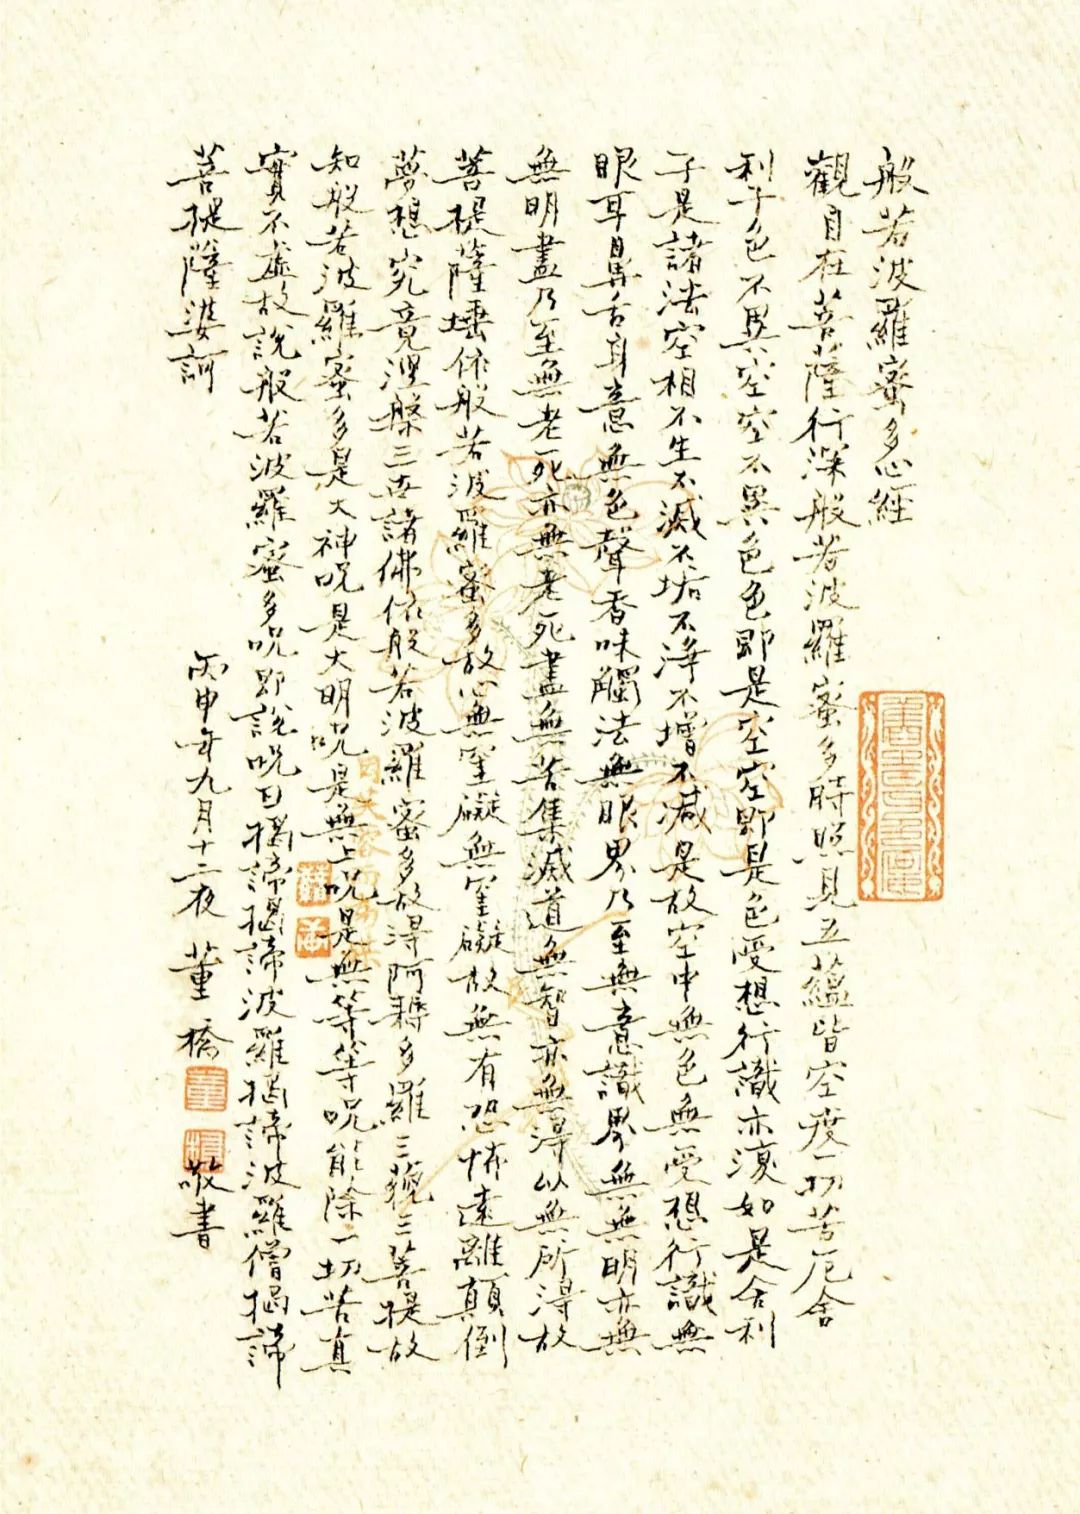 般若波羅蜜多心經
觀自在菩薩行深般若波羅蜜多時照見五蘊皆空度一切苦厄舍
利子色不異空空不異色色即是空空即是色受想行識亦復如是舍利
子是諸法空相不生不滅不垢不淨不增不減是故空中無色無受想行識無
眼耳鼻舌身意無色聲香味觸法無眼界乃至無意識界無無明亦無
無明盡乃至無老死亦無老死盡無苦集滅道無智亦無得以無所得故
菩提薩埵依般若波羅蜜多故心無罣礙無罣礙故無有恐怖遠離顛倒
夢想究竟涅槃三世諸佛依般若波羅蜜多故得阿耨多羅三藐三菩提故
知般若波羅蜜多是大神咒是大明咒是無上咒是無等等咒能除一切苦真
實不虛故說般若波羅蜜多咒即說咒曰揭諦揭諦波羅揭諦波羅僧揭諦
菩提薩婆訶
丙申年九月十二夜 董橋 敬書
董